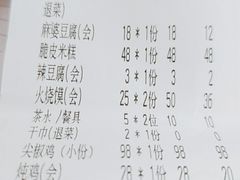 退菜)
麻婆豆腐(会) 18 * 1份 18 12
脆皮米糕 48 * 1份 48 48
辣豆腐(会) 3 * 1份 3 2
火烧馍(会) 25 * 2份 50 36
茶水 /餐具 5 * 2位 10 10
干巾(退菜) 2 * 1份 0 0
尖椒鸡 (小份) 98 * 1份 98 98
炖鸡(会) 28 * 1份 28 20